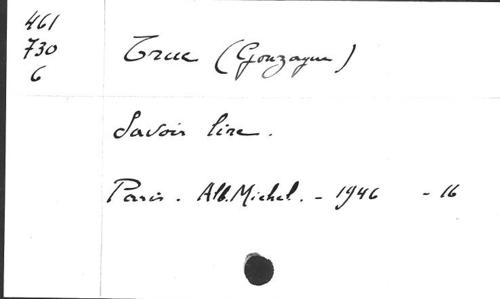 461
730
6
Truc (Gonzague)
Savoir lire.
Paris. Alb. Michel. - 1946 - 16